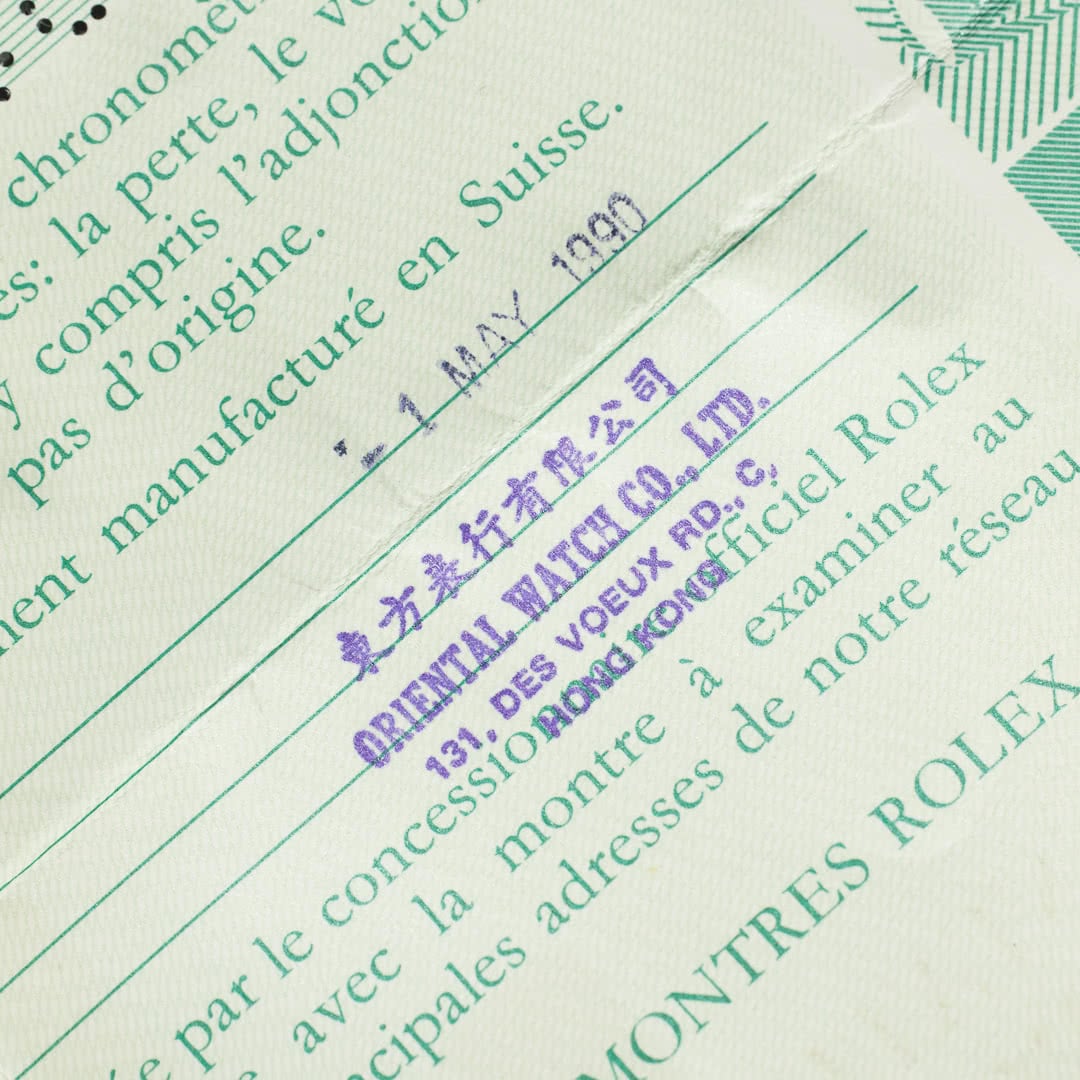 chronomèt
es: la perte, le v
y compris l'adjonctio
pas d'origine.
ment manufacturé en Suisse.
- 1 MAY 1990
東方表行有限公司
ORIENTAL WATCH CO., LTD.
131, DES VOEUX RD., C,
HONG KONG
ée par le concessionnaire officiel Rolex
e avec la montre à examiner au
ncipales adresses de notre réseau
MONTRES ROLEX